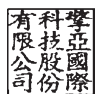 擎亞國際
科技股份
有限公司